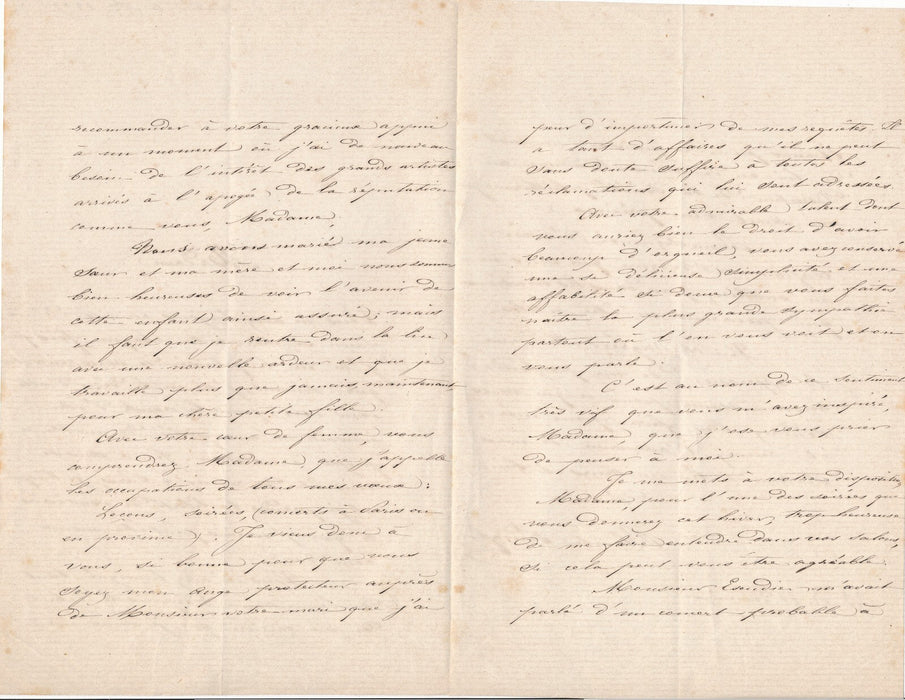 recommander à votre gracieux appui
à un moment où j'ai de nouveau
besoin de l'intérêt des grands artistes
arrivés à l'apogée de la réputation
comme vous, Madame.
Nous avons marié ma jeune
sœur et ma mère et moi nous sommes
bien heureuses de voir l'avenir de
cette enfant ainsi assuré; mais
il faut que je rentre dans la lice
avec une nouvelle ardeur et que je
travaille plus que jamais, maintenant
pour ma chère petite fille.
Avec votre cœur de femme, vous
comprendrez Madame, que j'appelle
les occupations de tous mes vœux:
Leçons, soirées, (concerts à Paris ou
en province). Je viens donc à
vous, si bonne pour que vous
soyez mon ange protecteur auprès
de Monsieur votre mari que j'ai
peur d'importuner de mes requêtes. Il
a tant d'affaires qu'il ne peut
sans doute suffire à toutes les
réclamations qui lui sont adressées.
Avec votre admirable talent dont
vous auriez bien le droit d'avoir
beaucoup d'orgueil, vous avez conservé
une si délicieuse simplicité et une
affabilité si douce que vous faites
naître la plus grande sympathie
partout où l'on vous voit et on
vous parle.
C'est au nom de ce sentiment
très vif que vous m'avez inspiré,
Madame, que j'ose vous prier
de penser à moi.
Je me mets à votre disposition
Madame, pour l'une des soirées que
vous donnerez cet hiver, trop heureuse
de me faire entendre dans vos salons,
si cela peut vous être agréable.
Monsieur Escudier m'avait
parlé d'un concert probable à